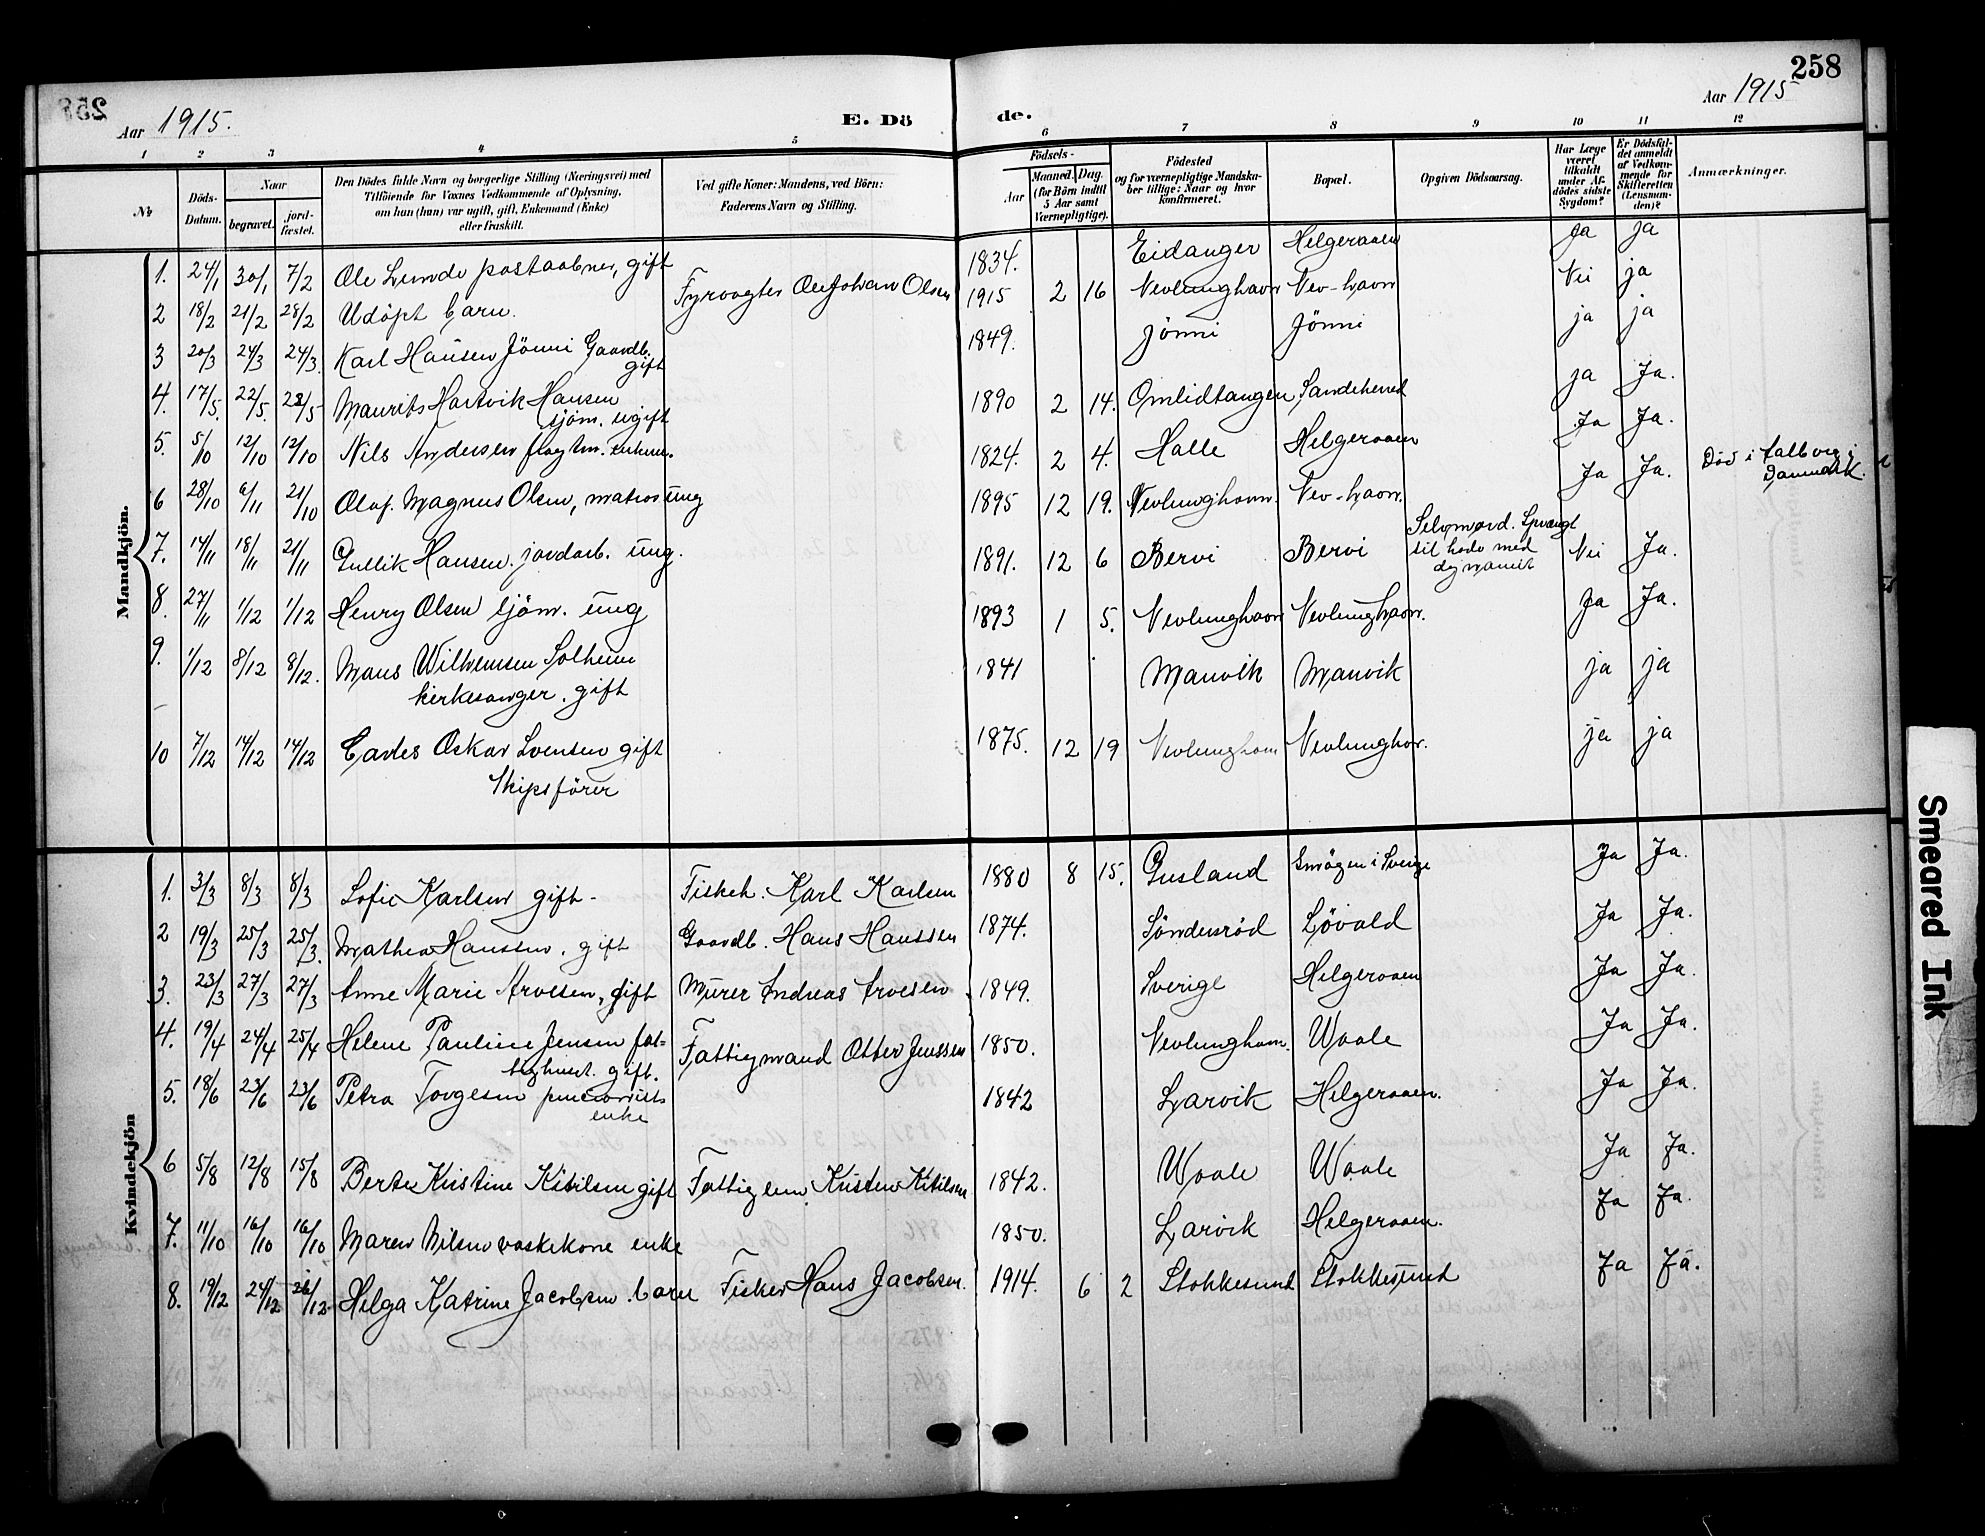 258
Aar 1915.
E. Dö
de.
Aar 1915
1 2 3 4 5 6 7 8 9 10 11 12
No
Döds-Datum.
Naar
begravet.
jord-fæstet.
Den Dödes fulde Navn og borgerlige Stilling (Næringsvei) med
Tilföiende for Voxnes Vedkommende af Oplysning,
om han (hun) var ugift, gift, Enkemand (Enke)
eller fraskilt.
Ved gifte Koner: Mandens, ved Börn:
Faderens Navn og Stilling.
Födsels-
Aar
Maaned. Dag.
(for Börn indtil
5 Aar samt
Værnepligtige).
Födested
og for værnepligtige Mandska-
ber tillige: Naar og hvor
konfirmeret.
Bopæl.
Opgiven Dödsaarsag.
Har Læge
været
tilkaldt
under Af-
dödes sidste
Sygdom?
Er Dödsfal-
det anmeldt
af Vedkom-
mende for
Skifteretten
(Lensman-
den)?
Anmærkninger.
Mandkjön.
1. 24/1 30/1 7/2 Ole Lunde postaabner, gift 1834. Eidanger Helgeraaen Ja ja
2 18/2 21/2 28/2 Udöpt barn. Fyrvogter Ole Johan Olsen 1915 2 16 Nevlunghavn Nev-havn Nei ja
3 20/3 24/3 24/3. Karl Hansen Jönni Gaardb. 1849. Jönni Jönni ja ja
gift
4. 17/5. 22/5. 28/5 Maurits Hartvik Hansen 1890 2 14. Omlidtangen Sandeherred ja Ja.
sjöm. ugift
5. 5/10 12/10 12/10 Nils Andersen enkem. 1824. 2 4. Halle Helgeraaen Ja Ja.
6 28/10 6/11 21/10 Olaf Magnus Olsen, matros ung 1895 12 19. Nevlunghavn. Nev-havn. Ja Ja. Död i
Danmark.
7. 14/11 18/11 21/11 Gullik Hansen. jordarb. ung. 1891. 12 6 Bervi Bervi Selvmord. Sprængt
til döde med
dynamit Nei Ja.
8. 27/11 1/12 1/12 Henry Olsen sjöm. ung 1893 1 5. Nevlunghavn Nevlunghavn. Ja Ja.
9. 1/12 8/12 8/12. Mans Wilhemsen Solheim 1841 Manvik Manvik ja ja
kirkesanger. gift
10 7/12 14/12 14/12 Carles Oskar Svensen gift 1875. 12 19 Nevlunghavn Nevlunghav. ja ja
Skipsförer
Kvindekjön
1. 3/3 8/3 8/3 Sofie Karlsen gift- Fiskeh. Karl Karlsen 1880 8 15. Gusland Smögen i Sverige Ja Ja.
2 19/3 25/3 25/3. Mathea Hanssen. gift Gaardb. Hans Hanssen 1874. Sönderröd Lövald Ja Ja.
3. 23/3 27/3 27/3 Anne Marie Arvesen, gift Murer Andreas Arvesen 1849. Sverige Helgeraaen Ja Ja.
4. 19/4 24/4 25/4 Helene Pauline Jensen fat- Fattigmand Otter Jenssen 1850. Nevlunghavn. Waale Ja Ja.
tighust. gift.
5. 18/6 23/6 23/6 Petra Torgersen pensionists 1842 Larvik Helgeraaen. Ja Ja.
enke
6 5/8 12/8 15/8 Berte Kristine Kitilsen gift Fattiglem Kristen Kitilsen 1842. Waale Waale Ja Ja.
7. 11/10 16/10 16/10 Maren Nilsen vaskekone enke 1850. Larvik Helgeraaen. Ja Ja.
8. 19/12 24/12 26/12. Helga Katrine Jacobsen. barn Fisker Hans Jacobsen. 1914. 6 2 Stokkesund Stokkesund Ja Ja.
Smeared Ink